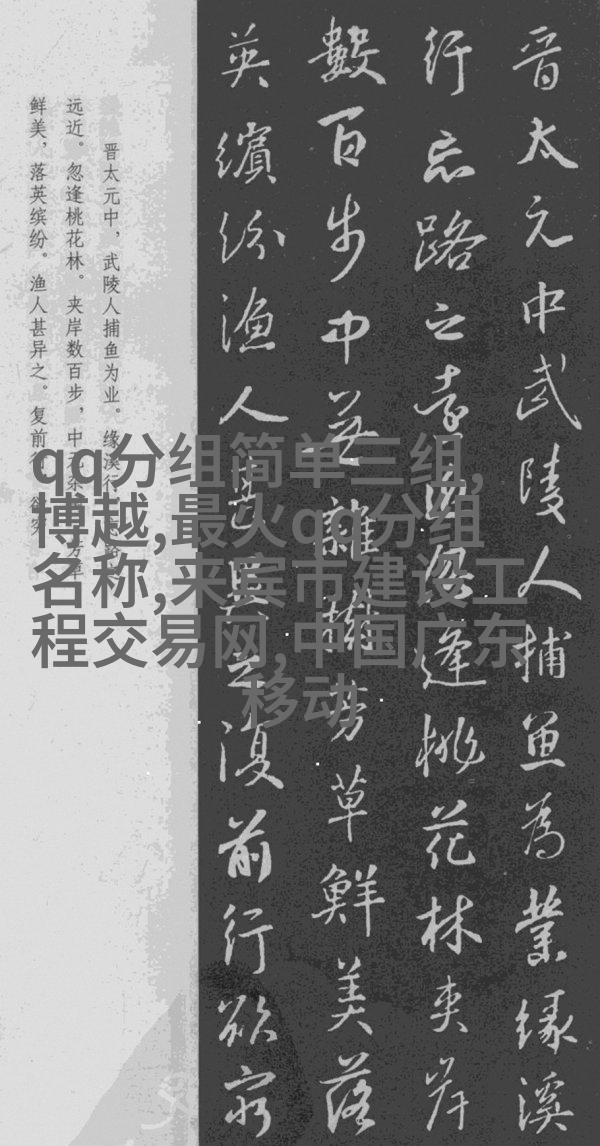 晋太元中武陵人捕魚為業緣溪
行忘路之遠近忽逢桃花林夾岸
數百步中无雜樹芳草鮮美落
英繽紛漁人甚異之復前行欲窮
晋太元中，武陵人捕鱼为业。缘溪行，忘路之
远近。忽逢桃花林。夹岸数百步，中无杂树，芳草
鲜美，落英缤纷。渔人甚异之。复前行，欲穷
qq分组简单三组,
博越,最火qq分组
名称,来宾市建设工
程交易网,中国广东
移动